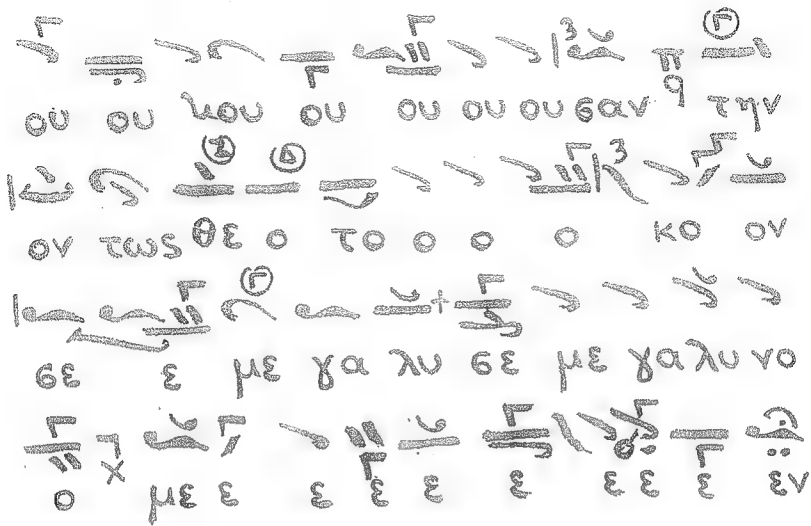 ου ου κου ου ου ου ου σαν την
ον τως θε ο το ο ο ο κο ον
σε ε με γα λυ σε με γα λυ νο
ο με ε ε ε ε ε ε ε ε εν